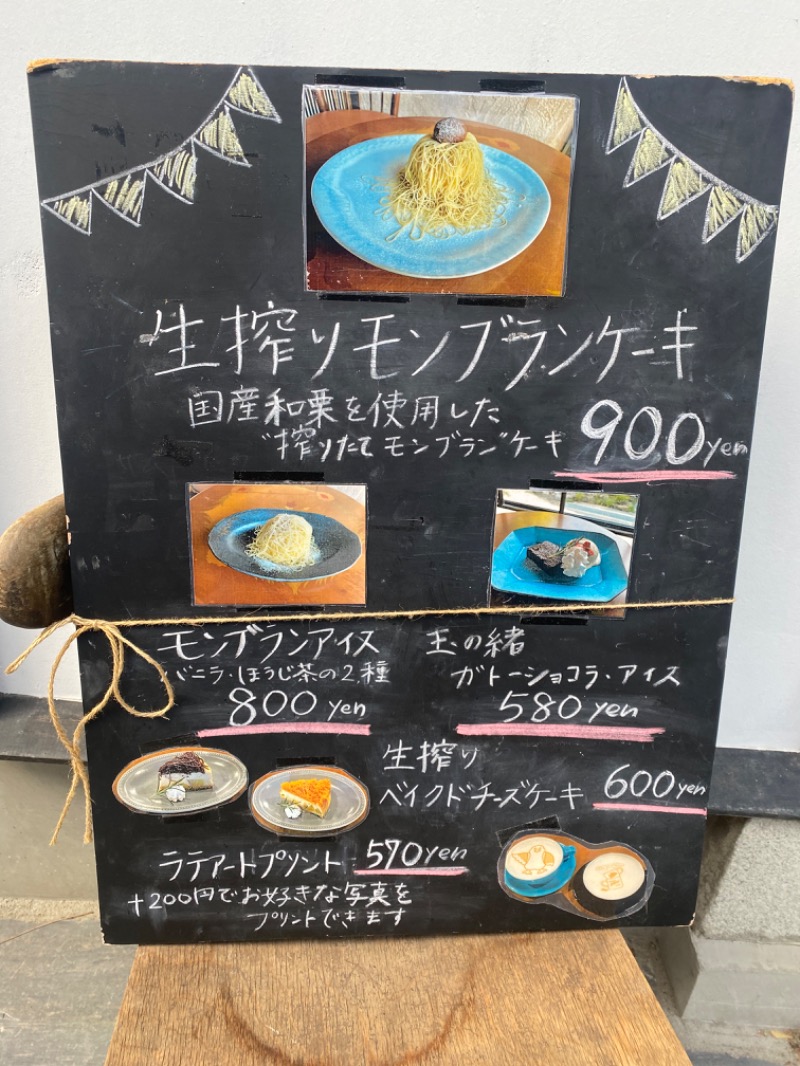 生搾りモンブランケーキ
国産和栗を使用した
"搾りたてモンブラン"ケーキ
900yen
モンブランアイス
バニラ・ほうじ茶の2種
800yen
玉の緒
ガトーショコラ・アイス
580yen
生搾り
ベイクドチーズケーキ 600yen
ラテアートプリント 570yen
+200円でお好きな写真を
プリントできます